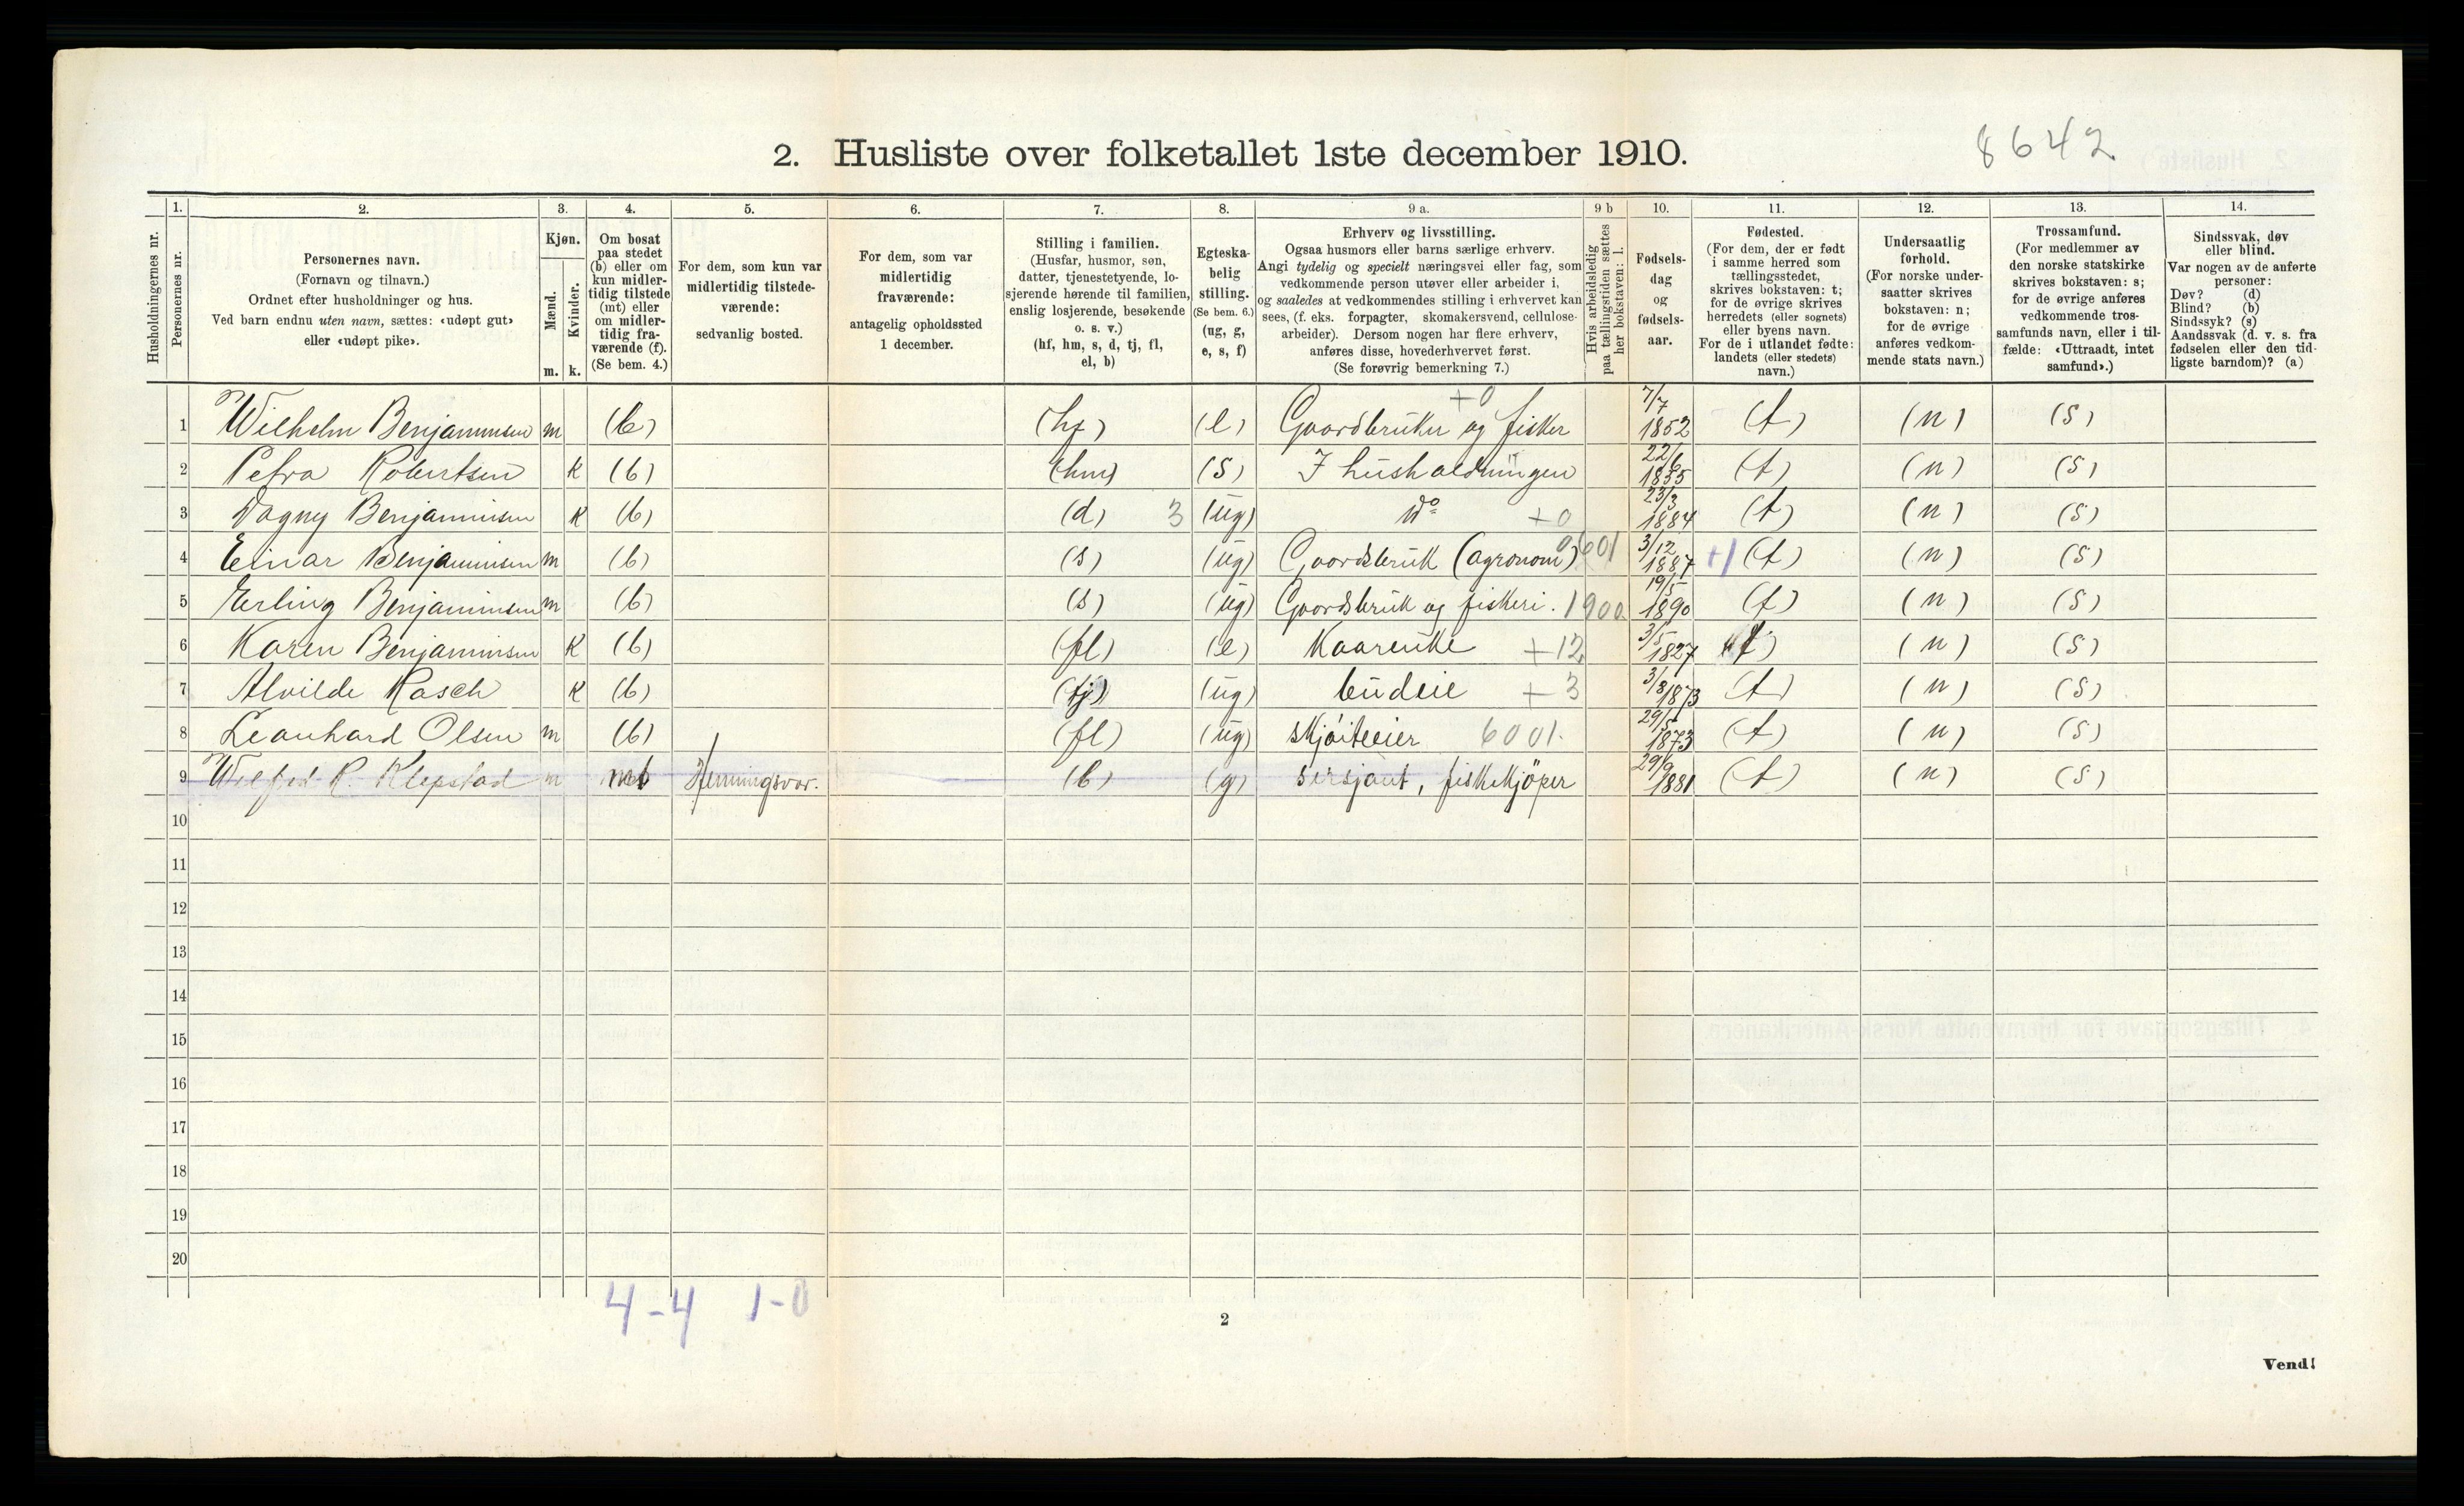 8642
2. Husliste over folketallet 1ste december 1910.
Husholdningernes nr.
1. Personernes nr.
2. Personernes navn.
(Fornavn og tilnavn.)
Ordnet efter husholdninger og hus.
Ved barn endnu uten navn, sættes: «udøpt gut»
eller «udøpt pike».
3. Kjøn.
Mænd. m.
Kvinder. k.
4. Om bosat
paa stedet
(b) eller om
kun midler-
tidig tilstede
(mt) eller
om midler-
tidig fra-
værende (f).
(Se bem. 4.)
5. For dem, som kun var
midlertidig tilstede-
værende:
sedvanlig bosted.
6. For dem, som var
midlertidig
fraværende:
antagelig opholdssted
1 december.
7. Stilling i familien.
(Husfar, husmor, søn,
datter, tjenestetyende, lo-
sjerende hørende til familien,
enslig losjerende, besøkende
o. s. v.)
(hf, hm, s, d, tj, fl,
el, b)
8. Egteska-
belig
stilling.
(Se bem. 6.)
(ug, g,
e, s, f)
9 a. Erhverv og livsstilling.
Ogsaa husmors eller barns særlige erhverv.
Angi tydelig og specielt næringsvei eller fag, som
vedkommende person utøver eller arbeider i,
og saaledes at vedkommendes stilling i erhvervet kan
sees, (f. eks. forpagter, skomakersvend, cellulose-
arbeider). Dersom nogen har flere erhverv,
anføres disse, hovederhvervet først.
(Se forøvrig bemerkning 7.)
9 b Hvis arbeidsledig
paa tællingstiden sættes
her bokstaven: l.
10. Fødsels-
dag
og
fødsels-
aar.
11. Fødested.
(For dem, der er født
i samme herred som
tællingsstedet,
skrives bokstaven: t;
for de øvrige skrives
herredets (eller sognets)
eller byens navn.
For de i utlandet fødte:
landets (eller stedets)
navn.)
12. Undersaatlig
forhold.
(For norske under-
saatter skrives
bokstaven: n;
for de øvrige
anføres vedkom-
mende stats navn.)
13. Trossamfund.
(For medlemmer av
den norske statskirke
skrives bokstaven: s;
for de øvrige anføres
vedkommende tros-
samfunds navn, eller i til-
fælde: «Uttraadt, intet
samfund».)
14. Sindssvak, døv
eller blind.
Var nogen av de anførte
personer:
Døv? (d)
Blind? (b)
Sindssyk? (s)
Aandssvak (d. v. s. fra
fødselen eller den tid-
ligste barndom)? (a)
1 Wilhelm Benjaminsen m (b) (hf) (e) Gaardbruker og fisker +0 7/7 1852 (t) (n) (s)
2 Petra Robertsen k (b) (hm) (s) I husholdningen 22/6 1855 (t) (n) (s)
3 Dagny Benjaminsen k (b) (d) 3 (ug) do +0 23/3 1884 (t) (n) (s)
4 Einar Benjaminsen m (b) (s) (ug) Gaardsbruk (agronom) 0601 3/12 1887 +1 (t) (n) (s)
5 Erling Benjaminsen m (b) (s) (ug) Gaardsbruk og fiskeri. 1900. 19/5 1890 (t) (n) (s)
6 Karen Benjaminsen k (b) (fl) (e) Kaarenke +12. 3/5 1827 (t) (n) (s)
7 Alvilde Rasch k (b) (tj) (ug) budeie +3 3/8 1873 (t) (n) (s)
8 Leonhard Olsen m (b) (fl) (ug) skjøiteeier 6001. 29/5 1873 (t) (n) (s)
9 Wilfred R. Klepstad m mt Henningsvær. (b) (g) sersjant, fiskekjöper 29/9 1881 (t) (n) (s)
10
11
12
13
14
15
16
17
18
19
20
4-4 1-0
2
Vend!